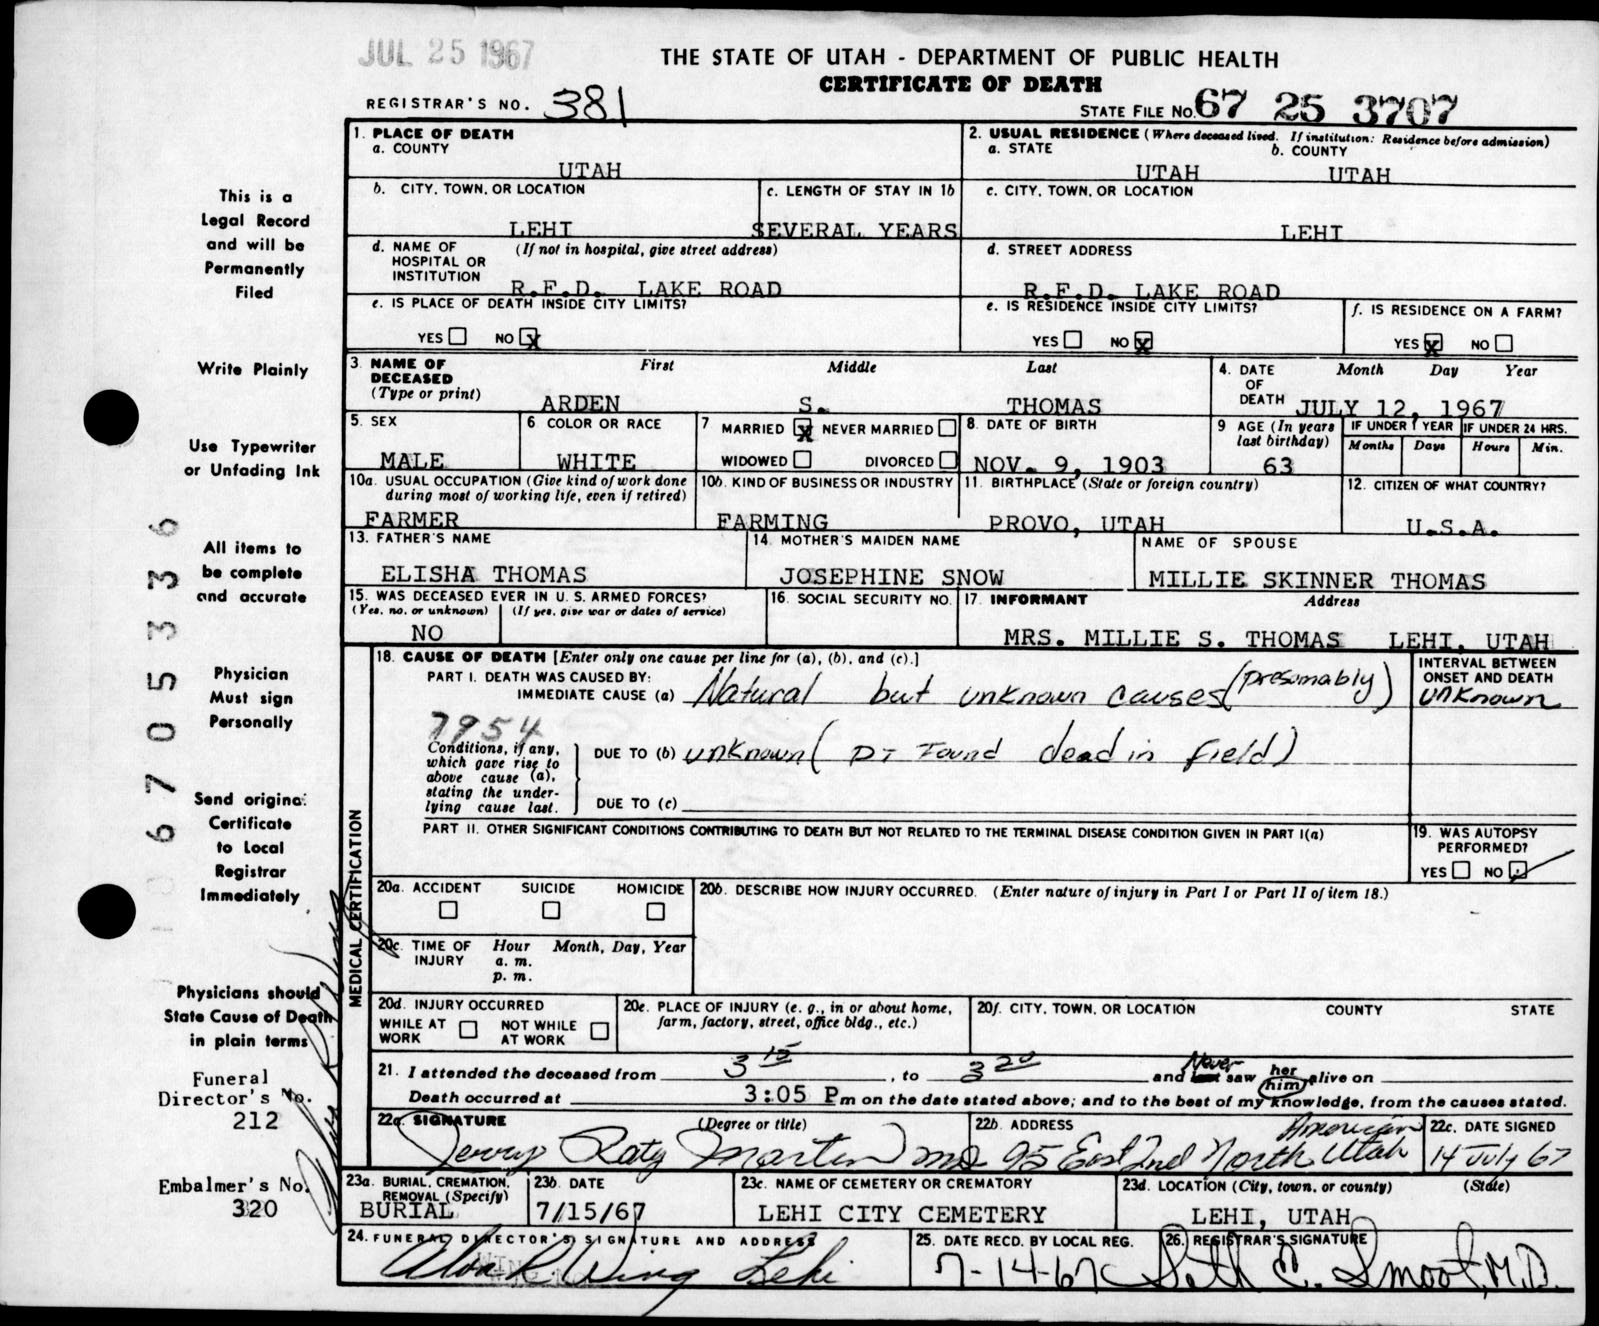 JUL 25 1967
THE STATE OF UTAH - DEPARTMENT OF PUBLIC HEALTH
CERTIFICATE OF DEATH
REGISTRAR'S NO. 381
STATE FILE NO. 67 25 3707
1. PLACE OF DEATH
a. COUNTY
UTAH
2. USUAL RESIDENCE (Where deceased lived. If institution: Residence before admission)
a. STATE b. COUNTY
UTAH UTAH
b. CITY, TOWN, OR LOCATION
LEHI
c. LENGTH OF STAY IN 1b
SEVERAL YEARS
c. CITY, TOWN, OR LOCATION
LEHI
d. NAME OF HOSPITAL OR INSTITUTION (If not in hospital, give street address)
R.F.D. LAKE ROAD
d. STREET ADDRESS
R.F.D. LAKE ROAD
e. IS PLACE OF DEATH INSIDE CITY LIMITS?
YES NO X
e. IS RESIDENCE INSIDE CITY LIMITS?
YES NO X
f. IS RESIDENCE ON A FARM?
YES X NO
3. NAME OF DECEASED (Type or print)
First Middle Last
ARDEN S. THOMAS
4. DATE OF DEATH
Month Day Year
JULY 12, 1967
5. SEX
MALE
6 COLOR OR RACE
WHITE
7 MARRIED X NEVER MARRIED
WIDOWED DIVORCED
8. DATE OF BIRTH
NOV. 9, 1903
9 AGE (In years last birthday)
63
IF UNDER 1 YEAR IF UNDER 24 HRS.
Months Days Hours Min.
10a. USUAL OCCUPATION (Give kind of work done during most of working life, even if retired)
FARMER
10b. KIND OF BUSINESS OR INDUSTRY
FARMING
11. BIRTHPLACE (State or foreign country)
PROVO, UTAH
12. CITIZEN OF WHAT COUNTRY?
U.S.A.
13. FATHER'S NAME
ELISHA THOMAS
14. MOTHER'S MAIDEN NAME
JOSEPHINE SNOW
NAME OF SPOUSE
MILLIE SKINNER THOMAS
15. WAS DECEASED EVER IN U. S. ARMED FORCES?
(Yes, no, or unknown) (If yes, give war or dates of service)
NO
16. SOCIAL SECURITY NO.
17. INFORMANT Address
MRS. MILLIE S. THOMAS LEHI, UTAH
MEDICAL CERTIFICATION
18. CAUSE OF DEATH [Enter only one cause per line for (a), (b), and (c).]
PART I. DEATH WAS CAUSED BY:
IMMEDIATE CAUSE (a) Natural but unknown causes (presomably)
INTERVAL BETWEEN ONSET AND DEATH
unknown
7954
Conditions, if any, which gave rise to above cause (a), stating the underlying cause last.
DUE TO (b) unknown (PT Found dead in field)
DUE TO (c)
PART II. OTHER SIGNIFICANT CONDITIONS CONTRIBUTING TO DEATH BUT NOT RELATED TO THE TERMINAL DISEASE CONDITION GIVEN IN PART I(a)
19. WAS AUTOPSY PERFORMED?
YES NO
20a. ACCIDENT SUICIDE HOMICIDE
20b. DESCRIBE HOW INJURY OCCURRED. (Enter nature of injury in Part I or Part II of item 18.)
20c. TIME OF INJURY Hour Month, Day, Year
a. m.
p. m.
20d. INJURY OCCURRED
WHILE AT WORK NOT WHILE AT WORK
20e. PLACE OF INJURY (e. g., in or about home, farm, factory, street, office bldg., etc.)
20f. CITY, TOWN, OR LOCATION COUNTY STATE
21. I attended the deceased from 3 15, to 3 20 and Never saw her him alive on
Death occurred at 3:05 P m on the date stated above; and to the best of my knowledge, from the causes stated.
22a. SIGNATURE (Degree or title)
Martin MD
22b. ADDRESS
95 East 2nd North American Utah
22c. DATE SIGNED
14 July 67
23a. BURIAL, CREMATION, REMOVAL (Specify)
BURIAL
23b. DATE
7/15/67
23c. NAME OF CEMETERY OR CREMATORY
LEHI CITY CEMETERY
23d. LOCATION (City, town, or county) (State)
LEHI, UTAH
24. FUNERAL DIRECTOR'S SIGNATURE AND ADDRESS
Alva R Wing Lehi
25. DATE RECD. BY LOCAL REG.
7-14-67
26. REGISTRAR'S SIGNATURE
Seth C. Smoot, M.D.
This is a
Legal Record
and will be
Permanently
Filed
Write Plainly
Use Typewriter
or Unfading Ink
All items to
be complete
and accurate
Physician
Must sign
Personally
Send original
Certificate
to Local
Registrar
Immediately
Physicians should
State Cause of Death
in plain terms
Funeral
Director's No.
212
Embalmer's No.
320
67053336